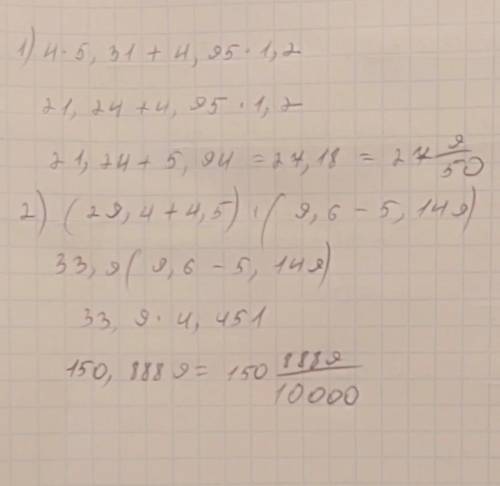 1) 4 · 5,31 + 4,95 · 1,2
21,24 + 4,95 · 1,2
21,24 + 5,94 = 27,18 = 27 9/50
2) (29,4 + 4,5) · (9,6 - 5,149)
33,9 (9,6 - 5,149)
33,9 · 4,451
150,8889 = 150 8889/10000